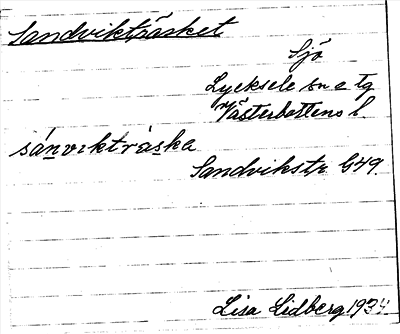 Sandvikträsket
Sjö
Lycksele sn o tg
Västerbottens l.
sánvıktràska
Sandvikstr. G49.
Lisa Lidberg 1934